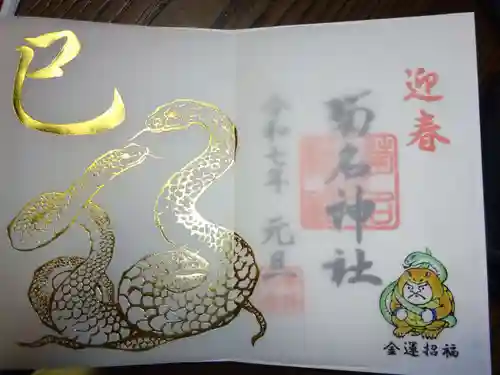 巳
迎春
菊名神社
令和七年 元旦
金運招福